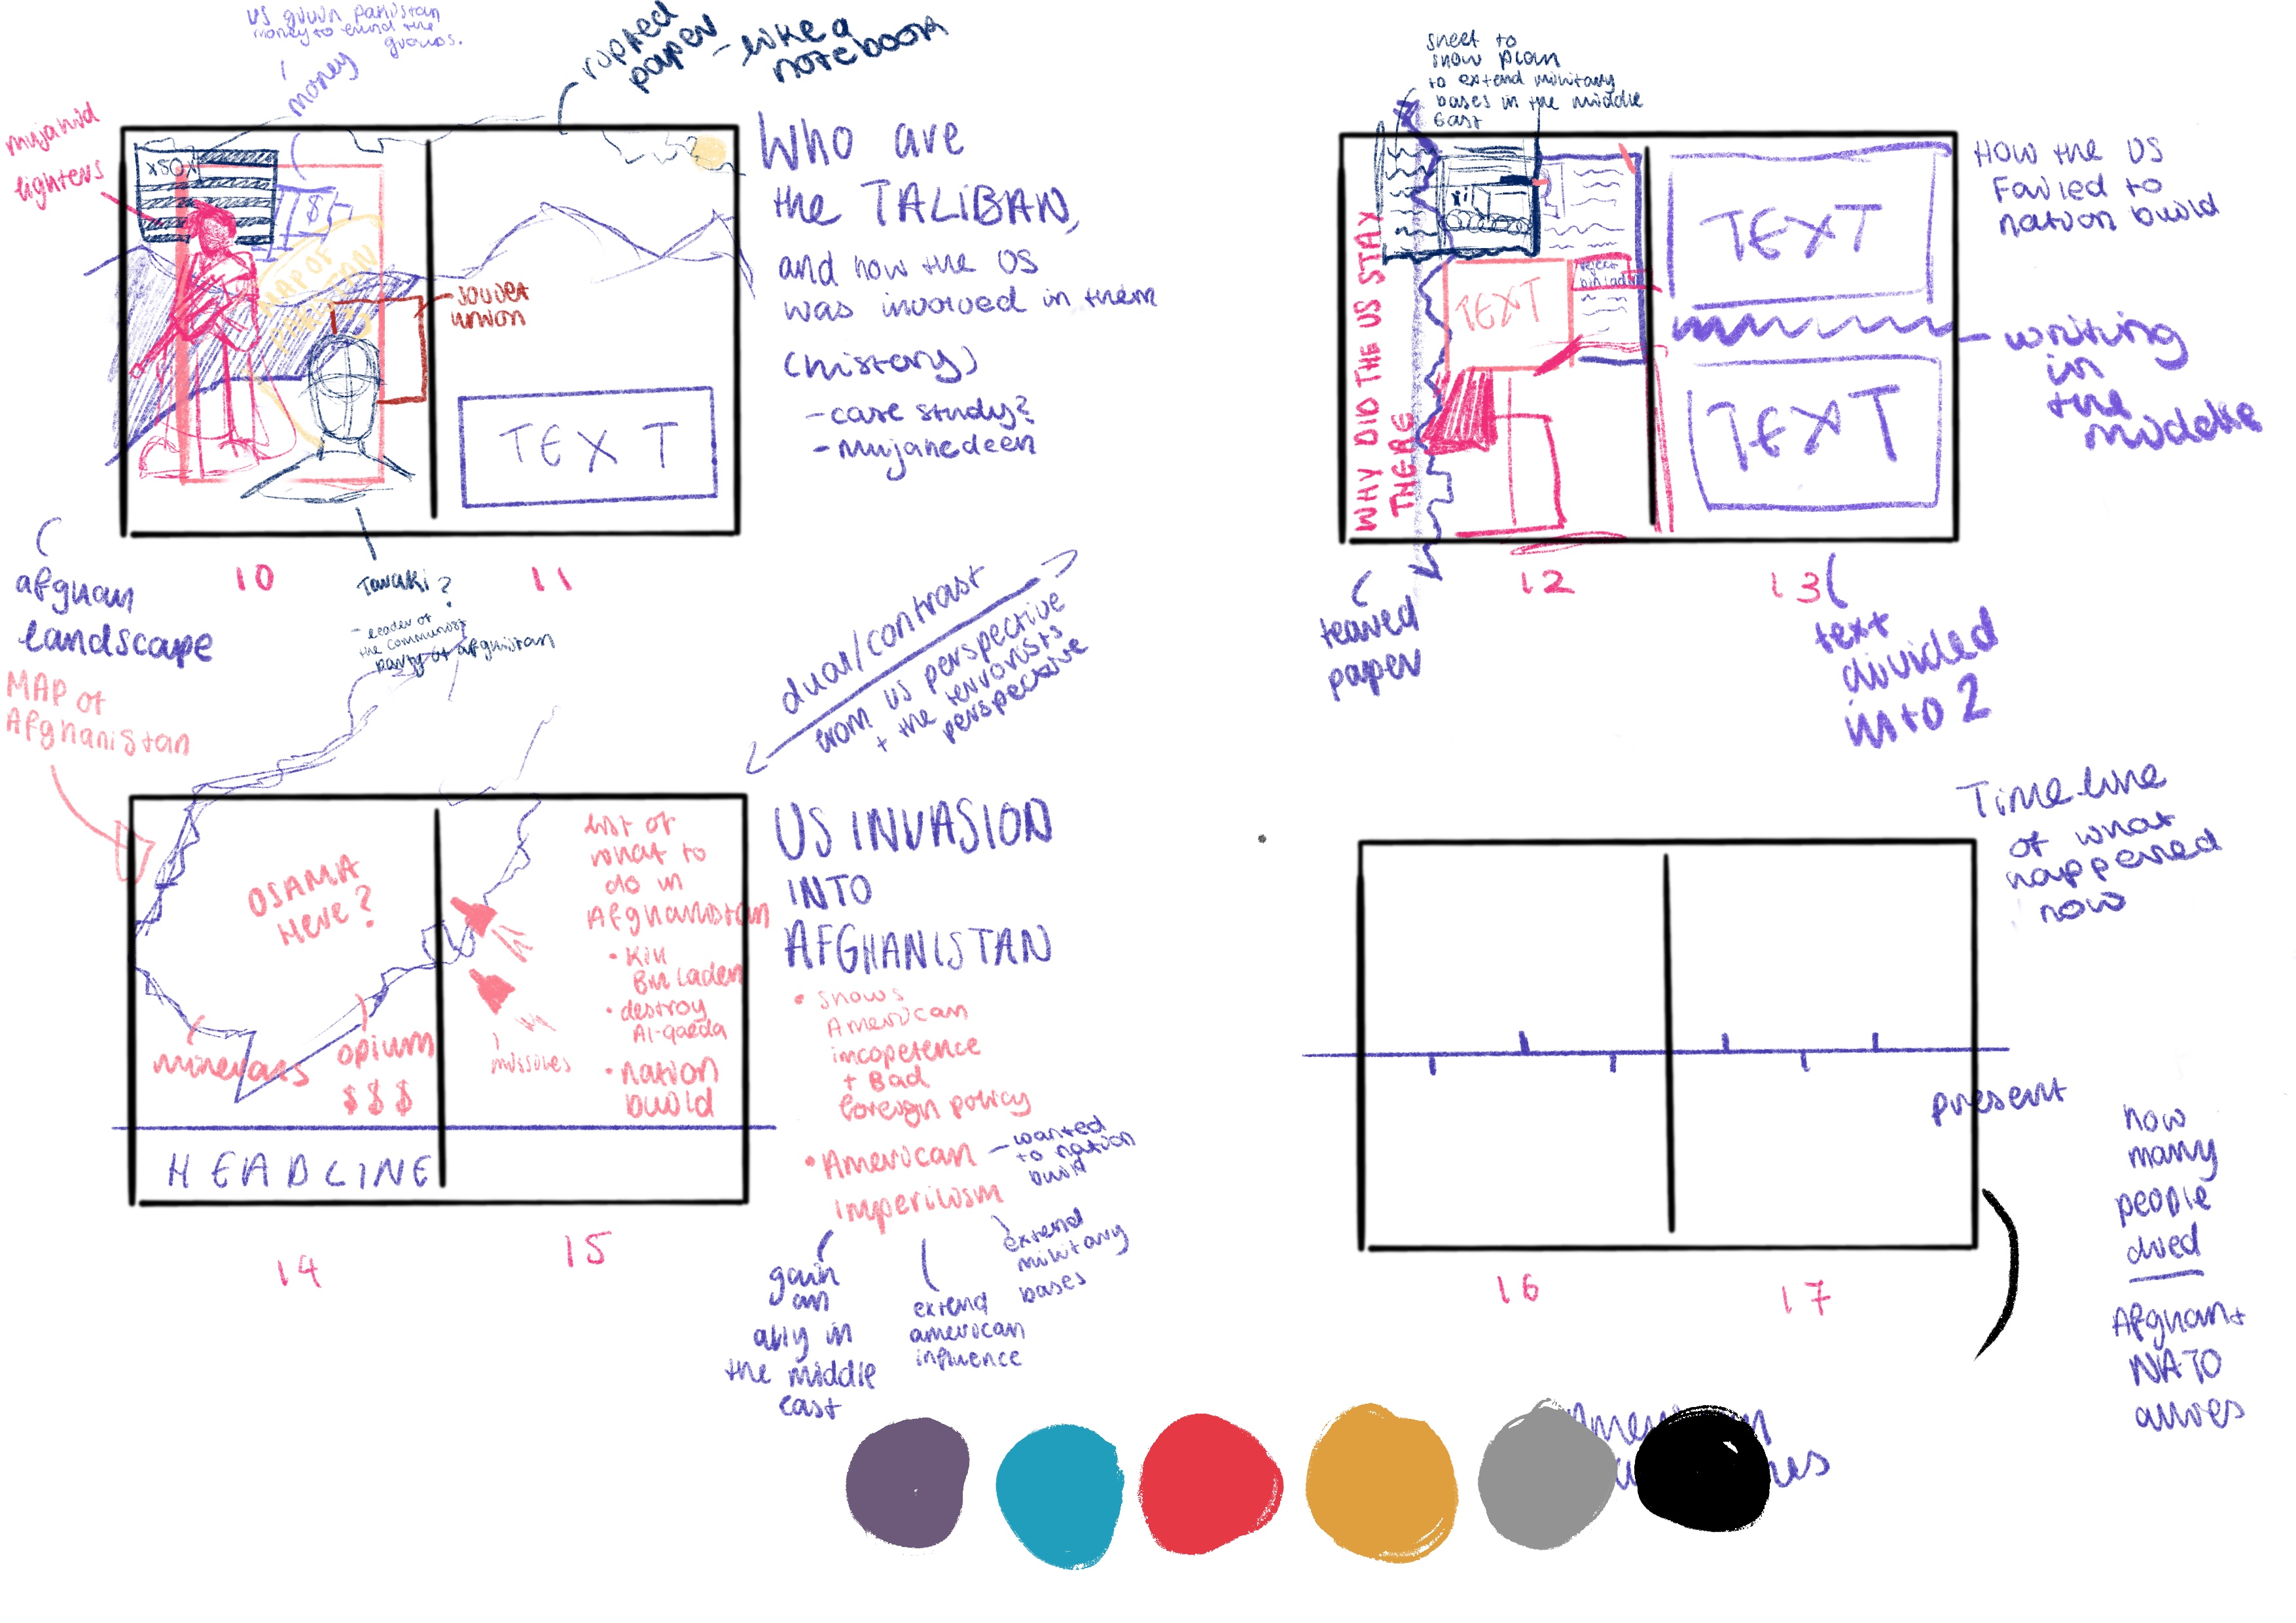 US givin Pakistan
money to fund the
groups.
money
ripped
paper - like a
notebook
mujahid
fighters
MAP OF
soviet
union
TEXT
Who are
the TALIBAN,
and how the US
was involved in them
(history)
- case study?
- mujahedeen
10
11
afghan
landscape
Taraki?
- leader of
the communist
party of afghistan
sheet to
show plan
to extend military
bases in the middle
East
WHY DID THE US STAY
THERE
TEXT
TEXT
TEXT
How the US
Failed to
nation build
writing
in
the
middle
12
13
teared
paper
text
divided
into 2
dual/contrast
from US perspective
+ the terrorists
perspective
MAP OF
Afghanistan
OSAMA
Here?
minerals
opium
$$$
missiles
list of
what to
do in
Afghanistan
• Kill
Bin Laden
• destroy
Al-qaeda
• nation
build
HEADLINE
14
15
US INVASION
INTO
AFGHANISTAN
• shows
American
incopetence
+ Bad
foreign policy
• American
Imperilism
- wanted
to nation
build
extend
military
bases
gain
an
ally in
the middle
east
extend
american
influence
Timeline
of what
happened
now
present
16
17
how
many
people
died
Afghan +
NATO
allies